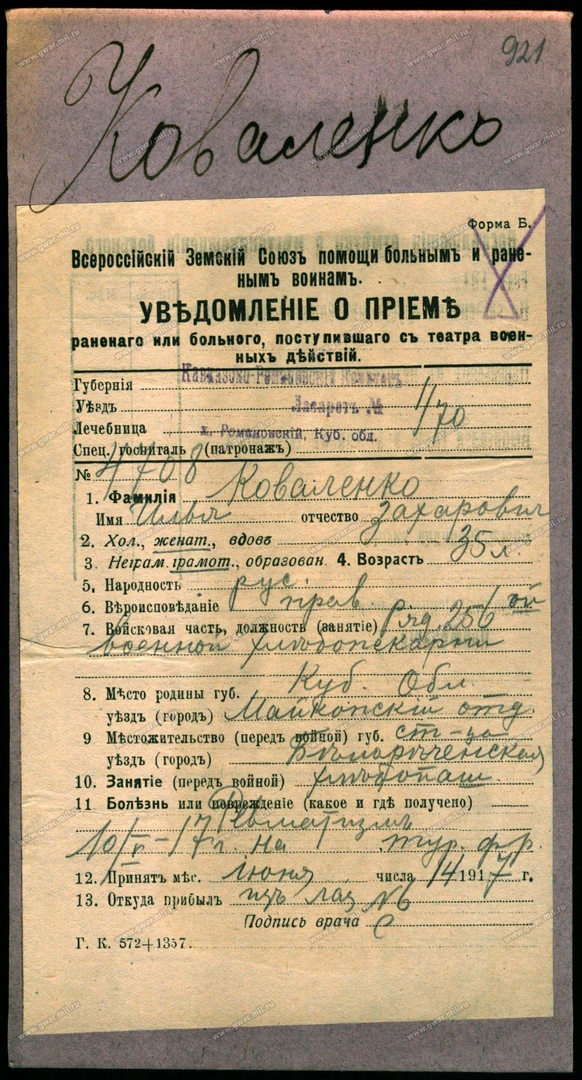 921
Коваленко
Форма Б.
Всероссійскій Земскій Союзъ помощи больнымъ и ране-
нымъ воинамъ.
УВѢДОМЛЕНІЕ О ПРІЕМѢ
раненаго или больного, поступившаго съ театра воен-
ныхъ дѣйствій.
Губернія
Уѣздъ Лазаретъ №
Лечебница х. Романовскій, Куб. обл. 1/70
Спец. госпиталь (патронажъ)
№ 4708
1. Фамилія Коваленко
Имя Илья отчество Захарович
2. Хол., женат., вдовъ 35 л.
3. Неграм. грамот., образован. 4. Возрастъ
5. Народность рус.
6. Вѣроисповѣданіе прав.
7. Войсковая часть, должность (занятіе) Ряд. 256 ой
военной хлѣбопекарни
8. Мѣсто родины губ. Куб. Обл.
уѣздъ (городъ) Майкопскій отд.
9 Мѣстожительство (передъ войной) губ. ст-ца
уѣздъ (городъ) Бѣлорѣченская
10. Занятіе (передъ войной) хлѣбопаш.
11 Болѣзнь или поврежденіе (какое и гдѣ получено)
Ревматизмъ
10/V - 17 г. на тур. фр.
12. Принятъ мѣс. июня числа 14 1917 г.
13. Откуда прибылъ изъ лаз. №6
Подпись врача
Г. К. 572+1357.
www.gwar.mil.ru